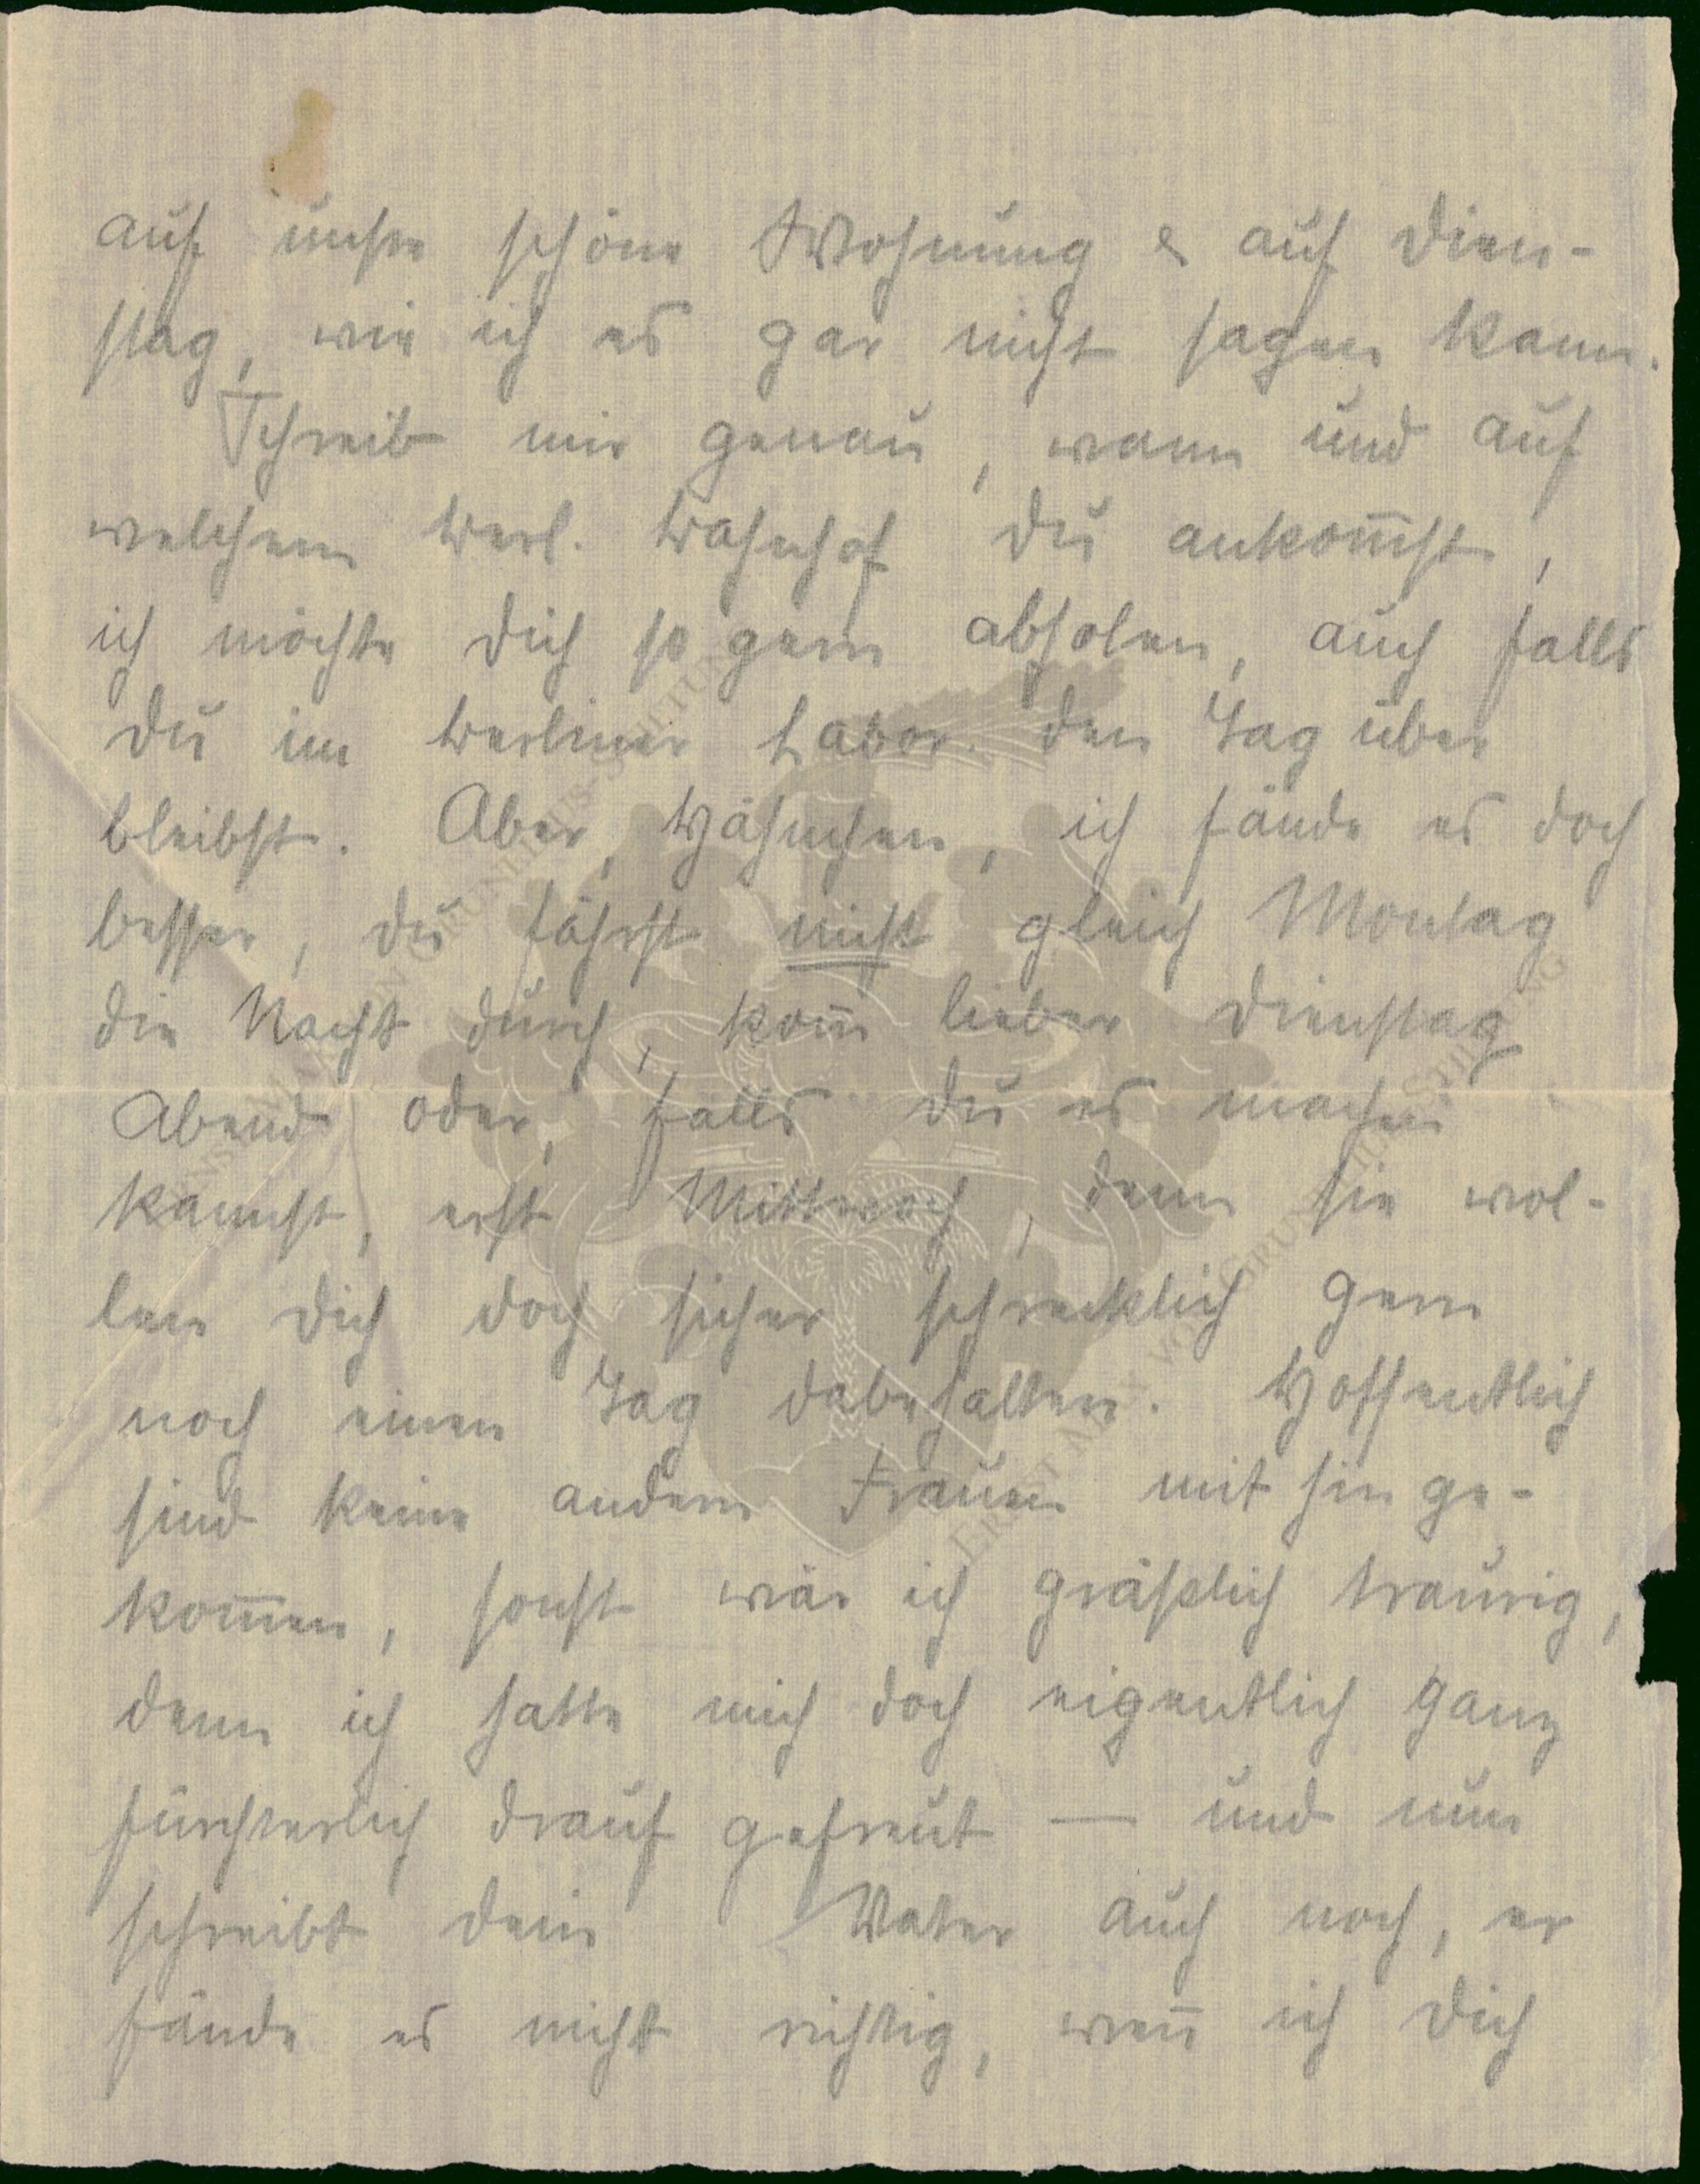 auf unsre schöne Wohnung & auf Dien-
stag, wie ich es gar nicht sagen kann.
Schreib mir genau, wann und auf
welchem Berl. Bahnhof du ankom̅st,
ich möchte dich so gern abholen, auch falls
du im Berliner Labor. den Tag über
bleibst. Aber, Hähnchen, ich fände es doch
besser, du fährst nicht gleich Montag
die Nacht durch, kom̅ lieber Dienstag
Abend oder, falls du es machen
kannst, erst Mittwoch, denn sie wol-
len dich doch sicher schrecklich gern
noch einen Tag dabehalten. Hoffentlich
sind keine andern Frauen mit hin ge-
kom̅en, sonst wär ich gräßlich traurig,
denn ich hatte mich doch eigentlich ganz
fürchterlich drauf gefreut — und nun
schreibt dein Vater auch noch, er
fände es nicht richtig, wen̅ ich dich
ERNST MAX VON GRUNELIUS-STIFTUNG
ERNST MAX VON GRUNELIUS-STIFTUNG